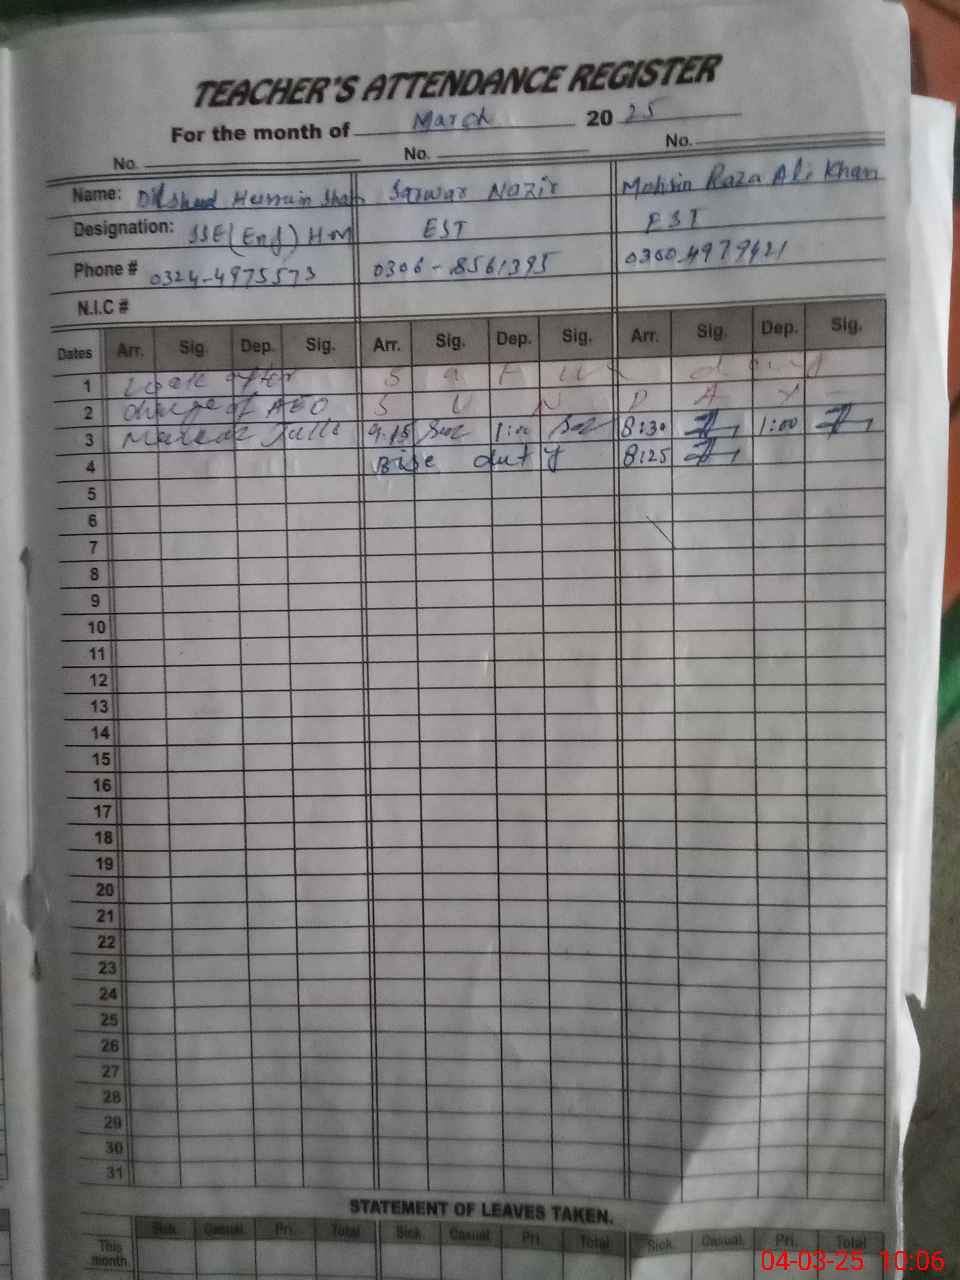 TEACHER'S ATTENDANCE REGISTER
For the month of March 20 25
No. No. No.
Name: Dilshad Hussain Shah Sarwar Nazir Mohsin Raza Ali Khan
Designation: SSE (Eng) H.M EST EST
Phone # 0324-4975573 0306-8561395 0300-4979421
N.I.C #
Dates Arr. Sig. Dep. Sig. Arr. Sig. Dep. Sig. Arr. Sig. Dep. Sig.
1 Look after
2 charge of AEO S U N D A Y
3 9.15 1:00 8:30 1:00
4 Bise duty 8:25
5
6
7
8
9
10
11
12
13
14
15
16
17
18
19
20
21
22
23
24
25
26
27
28
29
30
31
STATEMENT OF LEAVES TAKEN.
Sick. Casual. Pri. Total Sick. Casual. Pri. Total Sick. Casual. Pri. Total
This month.
04-03-25 10:06